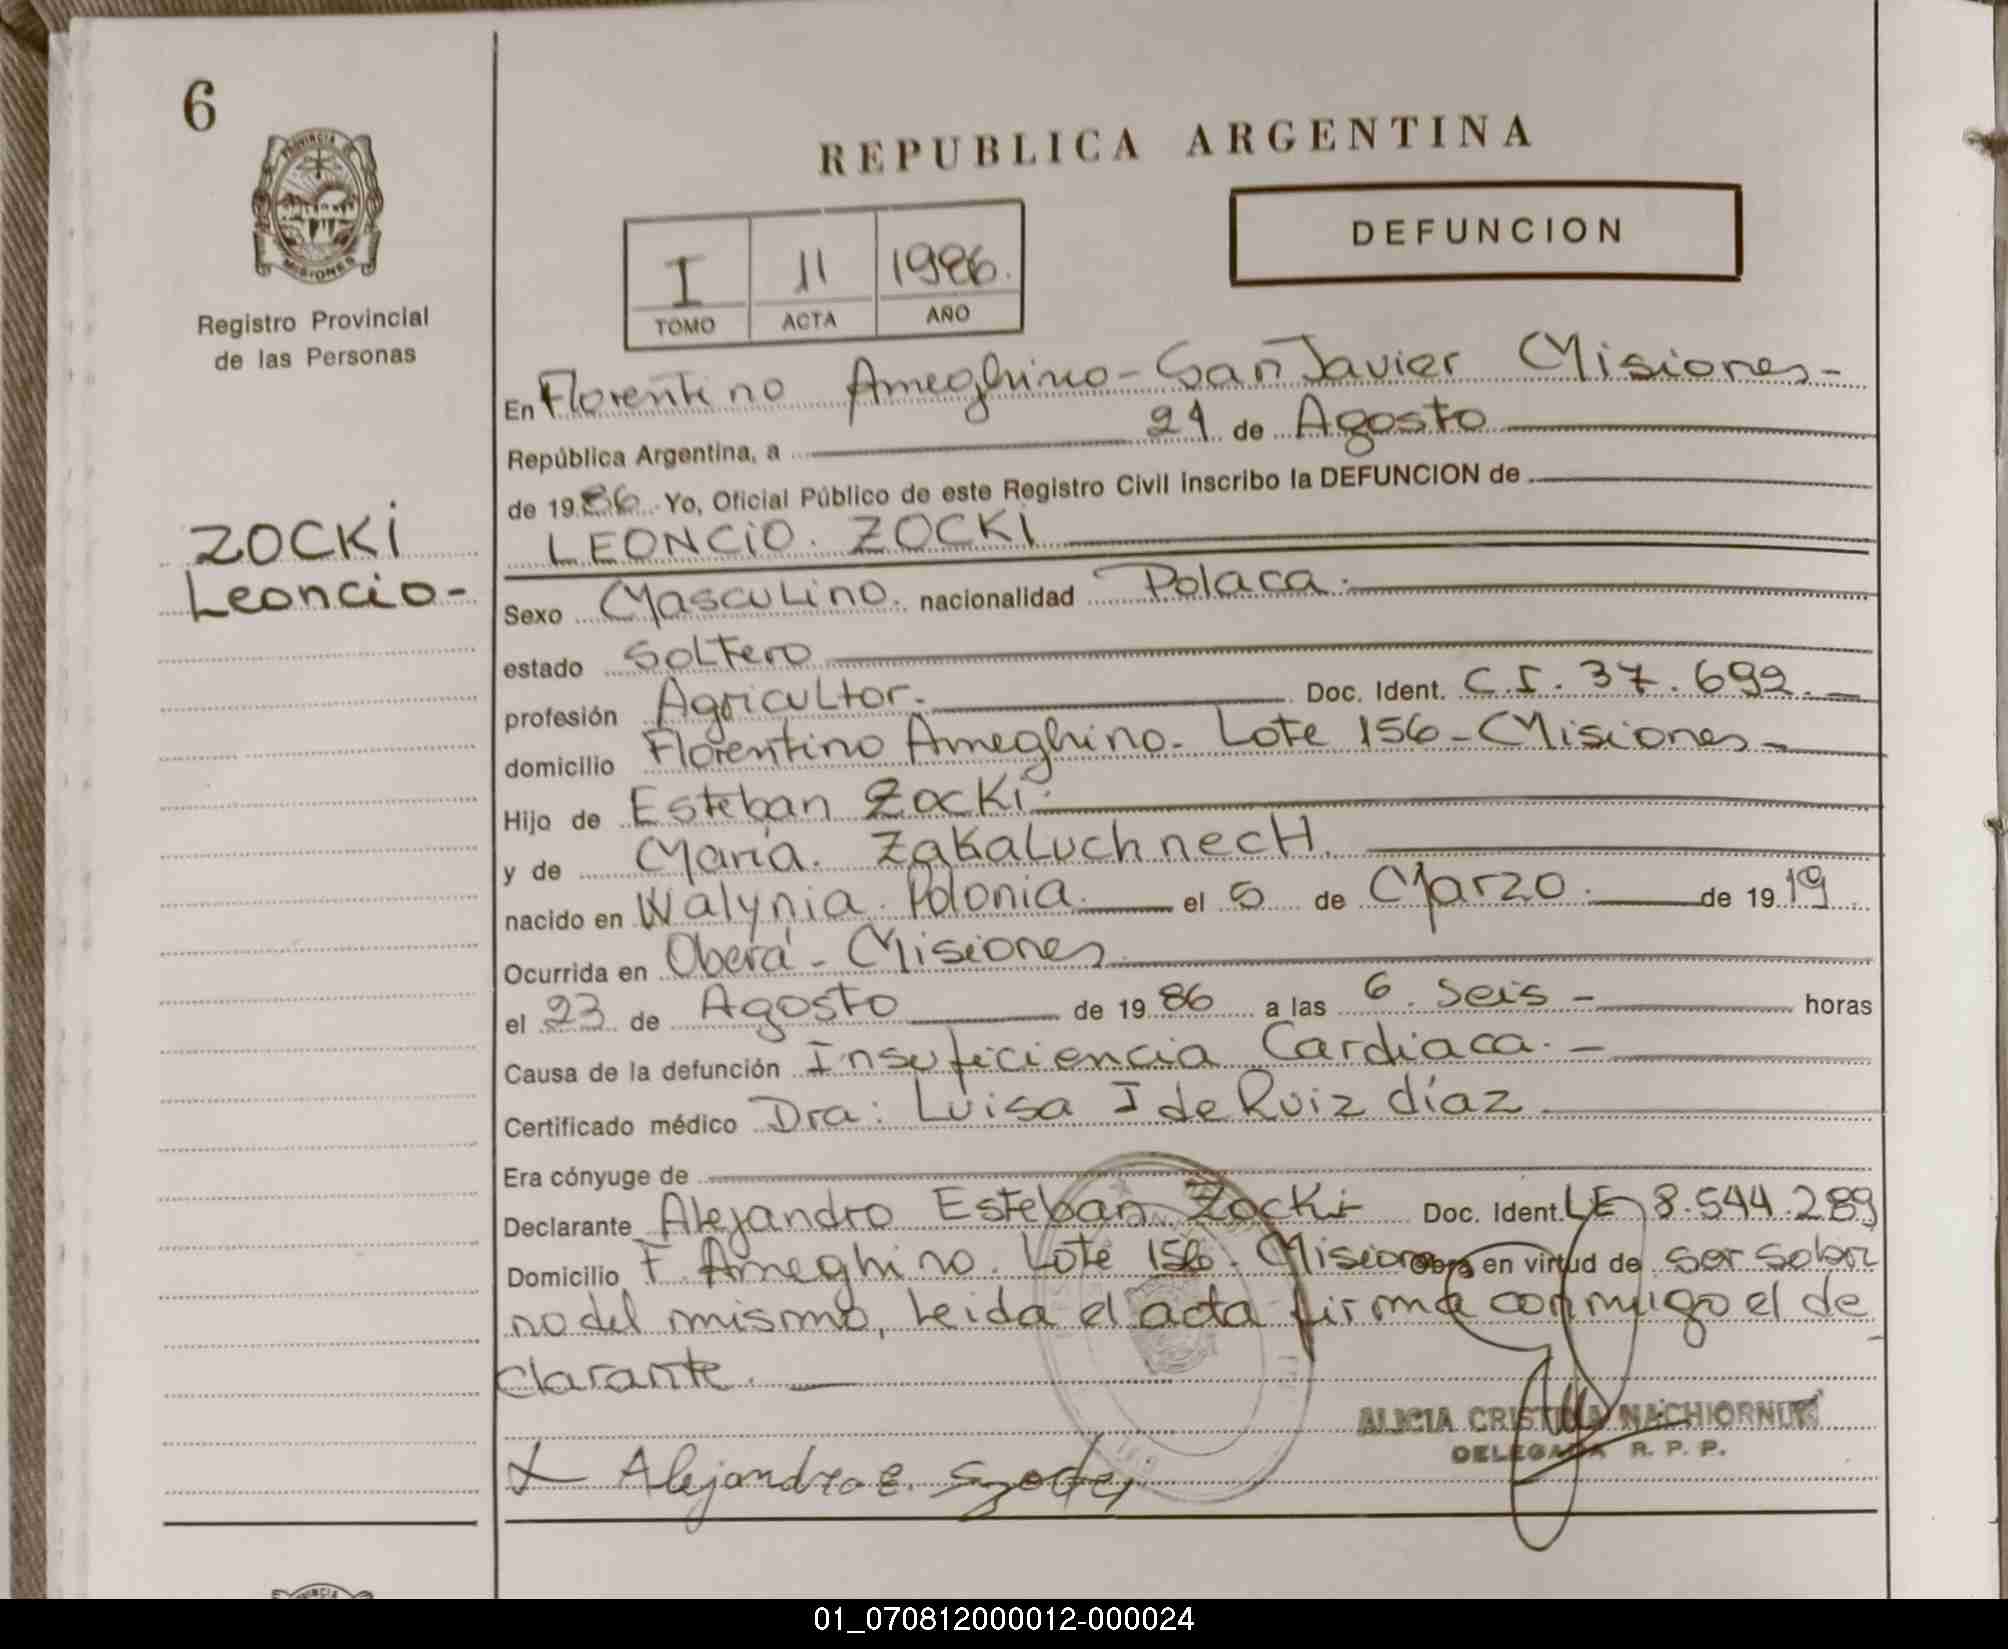 6
PROVINCIA DE
MISIONES
Registro Provincial
de las Personas
ZOCKi
Leoncio-
REPUBLICA ARGENTINA
DEFUNCION
I 11 1986.
TOMO ACTA AÑO
En Florentino Ameghino - San Javier Misiones-
República Argentina, a 24 de Agosto
de 1986 Yo, Oficial Público de este Registro Civil inscribo la DEFUNCION de
LEONCiO. ZOCKI
Sexo Masculino. nacionalidad Polaca.
estado Soltero
profesión Agricultor. Doc. Ident. C.I. 37.692.-
domicilio Florentino Ameghino- Lote 156-Misiones-
Hijo de Esteban Zocki.
y de María. ZakaluchnecH.
nacido en Walynia. Polonia. el 5 de Marzo. de 1919.
Ocurrida en Oberá - Misiones
el 23 de Agosto de 1986 a las 6. seis - horas
Causa de la defunción Insuficiencia Cardiaca.-
Certificado médico Dra: Luisa I de Ruiz díaz
Era cónyuge de
Declarante Alejandro Esteban Zocki Doc. Ident. LE 8.544.289
Domicilio F. Ameghino. Lote 156. Misiones Obra en virtud de ser sobri
no del mismo, Leida el acta firma conmigo el de
clarante.
ALICIA CRISTINA
DELEGADA R. P. P.
Alejandro E.
PROVINCIA
01_070812000012-000024